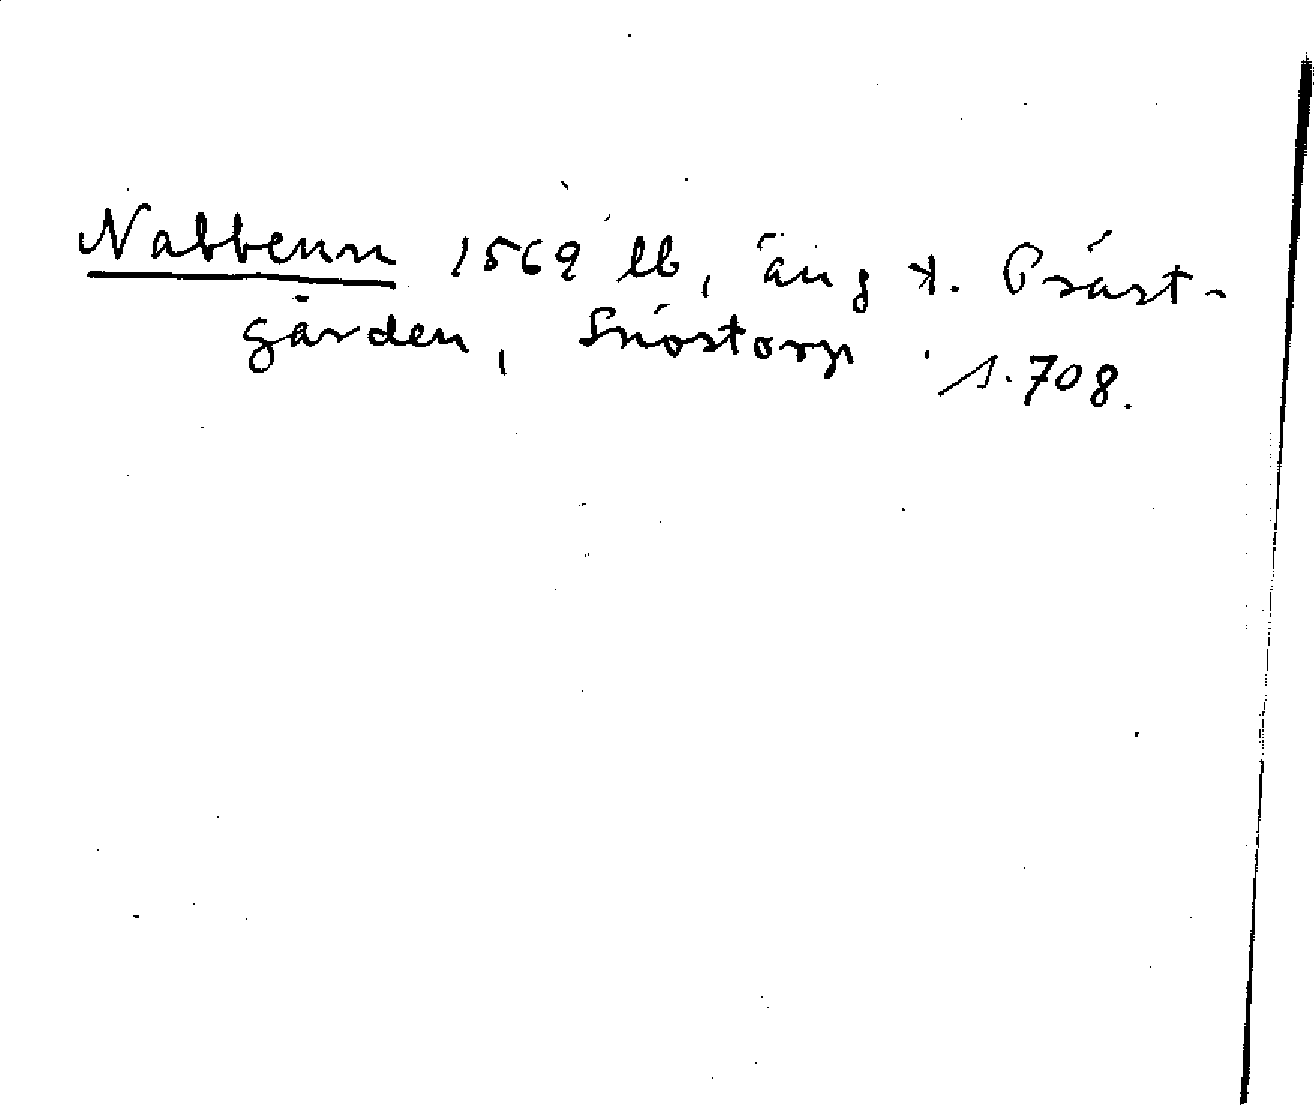 Nabbenn 1569 lb, äng t. Präst-
gården, Snöstorp s. 708.